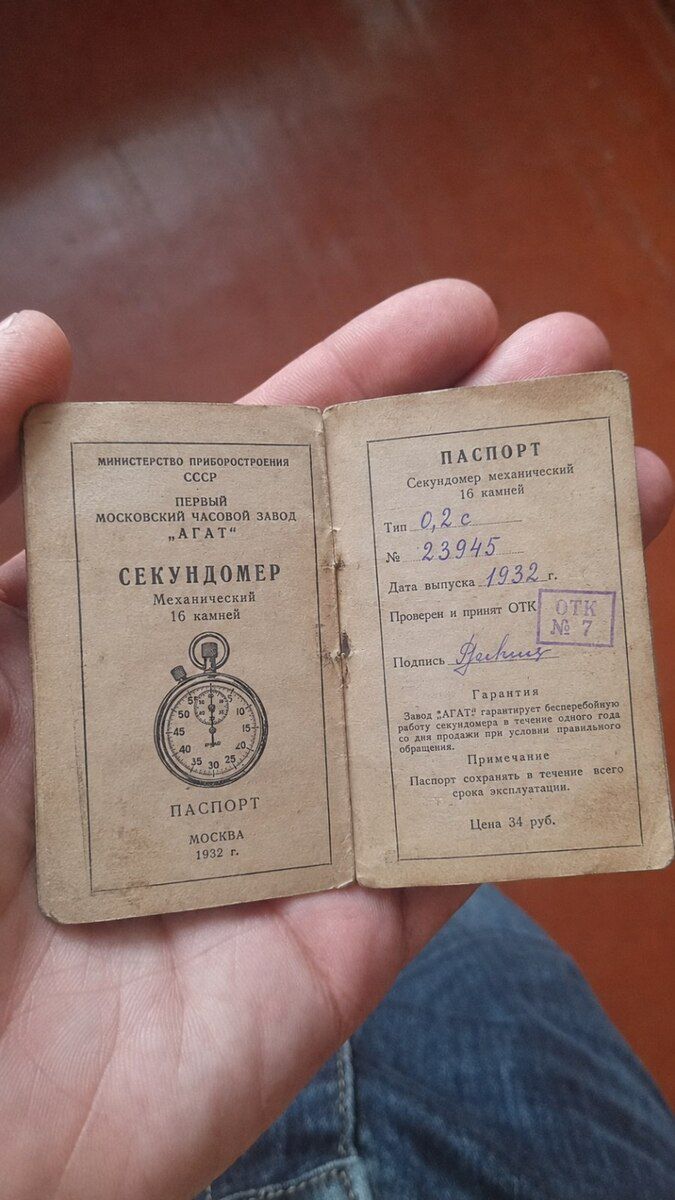 МИНИСТЕРСТВО ПРИБОРОСТРОЕНИЯ
СССР
ПЕРВЫЙ
МОСКОВСКИЙ ЧАСОВОЙ ЗАВОД
„АГАТ“
СЕКУНДОМЕР
Механический
16 камней
55
50
45
40
35
30
25
20
ПАСПОРТ
МОСКВА
1932 г.
ПАСПОРТ
Секундомер механический
16 камней
Тип 0,2 с
№ 23945
Дата выпуска 1932 г.
Проверен и принят ОТК
ОТК
№ 7
Подпись
Гарантия
Завод „АГАТ“ гарантирует бесперебойную
работу секундомера в течение одного года
со дня продажи при условии правильного
обращения.
Примечание
Паспорт сохранять в течение всего
срока эксплуатации.
Цена 34 руб.